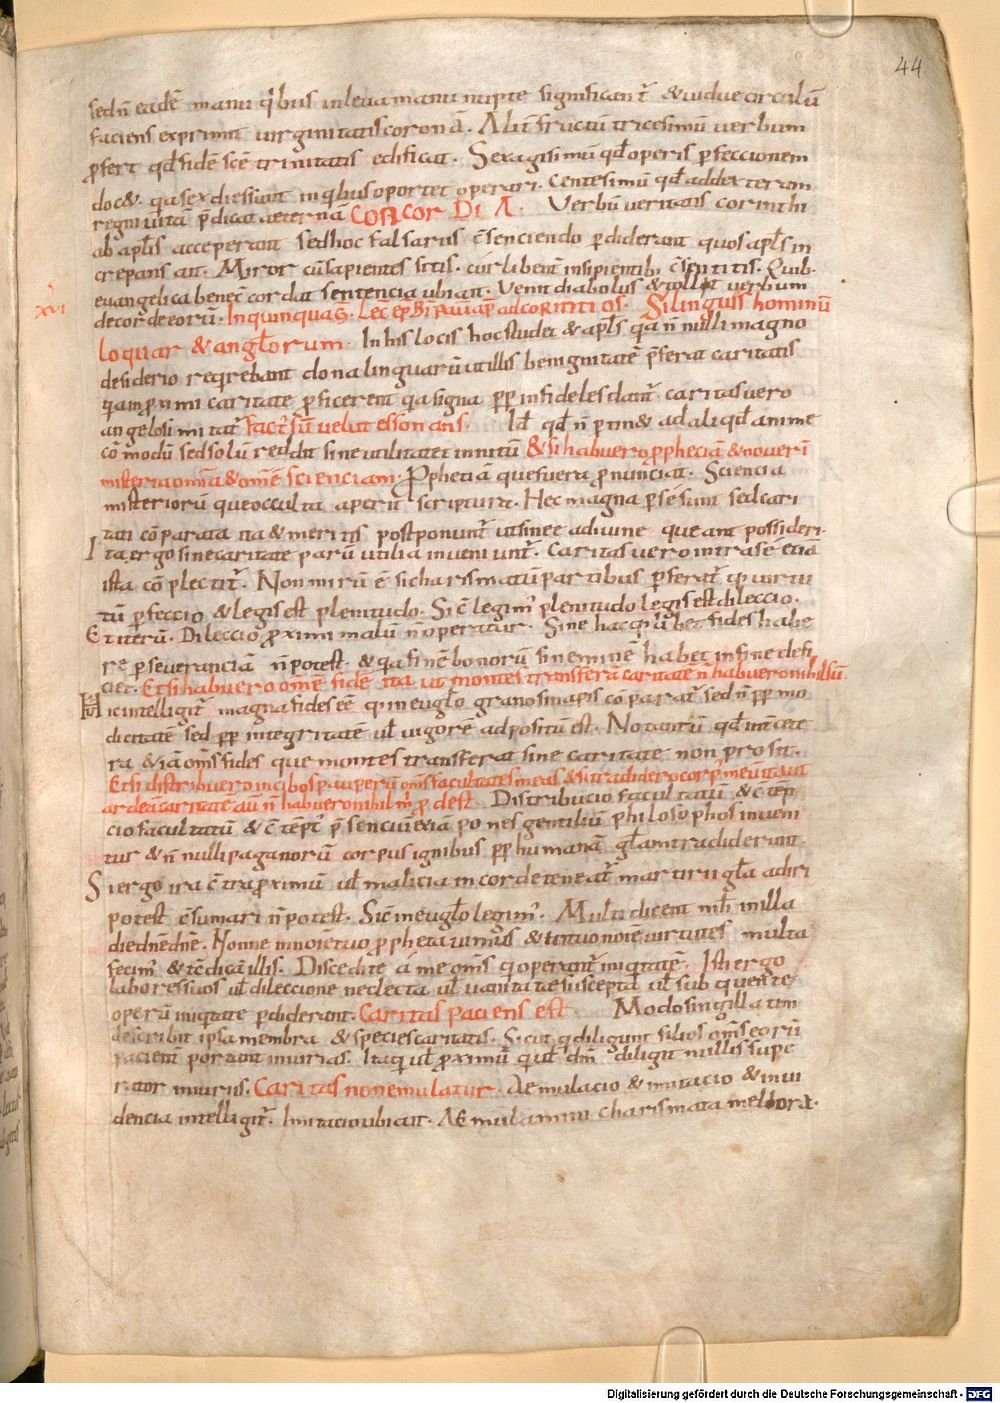 44
sedn̄ eadē manu q̇bus inleua manu nupte significant᷑ & uidue circulū
faciens exprimit uirginitatis coronā. Aliť fructū tricesimū uerbum
ꝓfert qđ fidē scē trinitatis edificat. Sexagisimū qđ operis ꝑfeccionem
doc&. qa sex dies sunt inq̇bus oportet operari. Centesimū qđ ad dexteram
regni uitā p̄dicat aeternā CON COR DI A. Verbū ueritatis corinthi
ab apłis acceperant sed hoc falsarius c̄senciendo ꝑdiderant quos apłs in
crepans ait. Miror cū sapientes sitis. cur libent̄ insipientibꝰ c̄sentitis. Quib.
euangelica bene c̄cordat sentencia ubi ait. Venit diabolus & tollit uerbum
xvi
de corde eorū. In quinquaḡ. Lec̄ epłe Bī Pauli apłi ad corintios. Si linguis hominū
loquar & angłorum. In his locis hoc studet & apłs qa n̄ nulli magno
desiderio reqrebant dona linguarū utillis benignitatē p̄ferat caritatis
qam ꝓximi caritate ꝓficerent qa signa ꝓꝑ infideles dant᷑. caritas uero
angelos imitat᷑ fact᷑ sū uelut es sonans. Id qđ n̄ ptin& ad aliqđ anime
cōmodū sed solū reddit sine utilitate tinnitū & si habuero ꝓpheciā & nouerī
misteria omīa & omē scienciam. Pphetiā que fuerā ꝓnunciat. Sciencia
misteriorū que occulta aperit scriptura. Hec magna ꝑse sunt sed cari
tati cōparata ita & meritis postponunt᷑ ut sine ea diuine queant possideri.
Ita ergo sine caritate parū utilia inueniunt᷑. Caritas uero intra se etiā
ista cōplectit᷑. Non mirū ē si charismatū partibus p̄ferat᷑ q̇ uirtu
tū ꝑfeccio & legis est plenitudo. Sic̄ legim᷑ plenitudo legis est dileccio.
Et iterū. Dileccio ꝓximi malū n̄ operatur. Sine hac q̇ uł bec fides habe
re ꝑseueranciā n̄ potest. & qa finē bonorū sine minē habet in fine defi
ciet. Et si habuero omē fidē ita ut montes transferā caritatē n̄ habuero nihil sū.
Hic intelligit᷑ magna fides eē q̇ in eugło grano sinapis cōparat᷑ sed n̄ ꝓꝑ mo
dicitatē sed ꝓꝑ integritatē uł uigorē adpositū est. Notantū qđ int̄ cete
ra & iā om̄s fides que montes transferat sine caritate non prosit.
Et si distribuero in cibos pauperū om̄s facultates meas & si tradidero corp᷑ meū ita ut
ardeā caritatē aū n̄ habuero nihil m̄ ꝓdest. Distribucio facultatū & c̄tēp
cio facultatū & c̄tēpt᷑ p̄senciū eciā pones gentiliū philosophos inueni
tur & n̄ nulli paganorū corpus ignibus ꝓꝑ humanā głam tradiderunt.
Si ergo ira c̄tra ꝓximū uł malicia in corde teneat᷑ martirii gła adiri
potest c̄sumari n̄ potest. Sic̄ in eugło legim᷑. Multi dicent mihi in illa
die dnē dnē. Nonne in noīe tuo ꝓphetauimus & in tuo noīe uirtutes multa
fecim᷑ & tc̄ dicā illis. Discedite ā me om̄s q̇ operant᷑ iniqtatē. Isti ergo
labores suos uł dileccione neclecta uł uanitatae suscepta uł subquente
operū iniqtate ꝑdiderant. Caritas paciens est Modo singillatim
describit ipsa membra & species caritatis. Sicut q̇ diligunt filios om̄s eorū
pacient᷑ portant iniurias. Itaq̇ uł ꝓximū q̇ uł dm̄ diligit nullis supe
rator iniuriis. Caritas non emulatur. Aemulacio & imitacio & inui
dencia intelligit᷑. Imitacio ubi ait. Aemulamini charismata meliora.
Digitalisierung gefördert durch die Deutsche Forschungsgemeinschaft - DFG